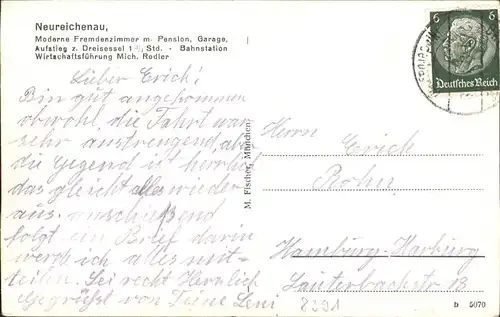 Neureichenau,
Moderne Fremdenzimmer m. Pension, Garage,
Aufstieg z. Dreisessel 1¾ Std. - Bahnstation
Wirtschaftsführung Mich. Redler
Lieber Erich!
Bin gut angekommen
obwohl die Fahrt war
sehr anstrengend, aber
die Gegend ist herrlich
das gleicht alles wieder
aus. anschießend
folgt ein Brief darin
werde ich alles mit-
teilen. Sei recht Herzlich
Gegrüßt von Deine Leni
M. Fischer, München
6 6
Deutsches Reich
Herrn Erich
Rohn
Hamburg-Harburg
Lauterbachstr 18
8391
b 5070